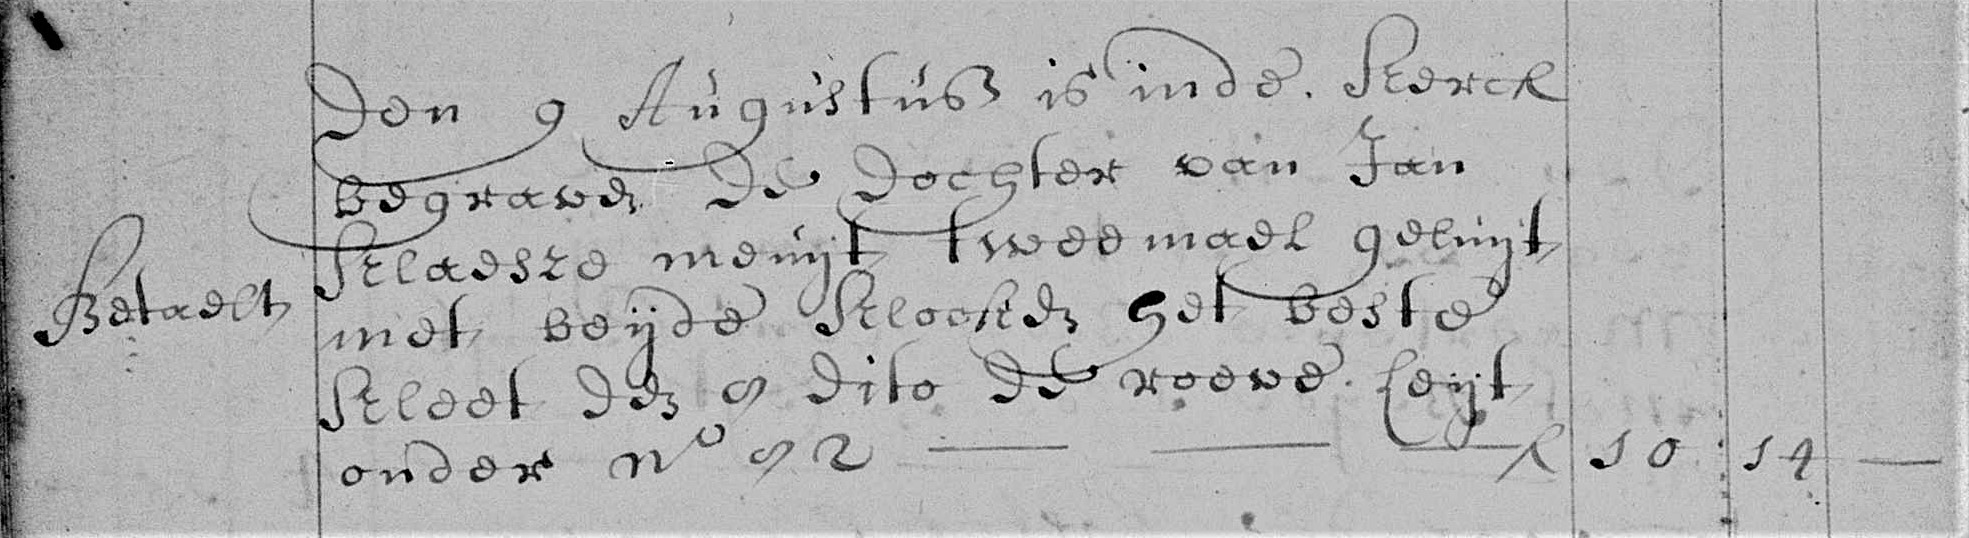 Den 9 Augustus is inde. Kerck
begraven De Dochter van Jan
Klaesze menijt tweemael geluijt
Betaelt
met beijde Klocken het beste
Kleet den 9 dito De roeve. Leyt
onder no 92 — — — f 10 : 14 —